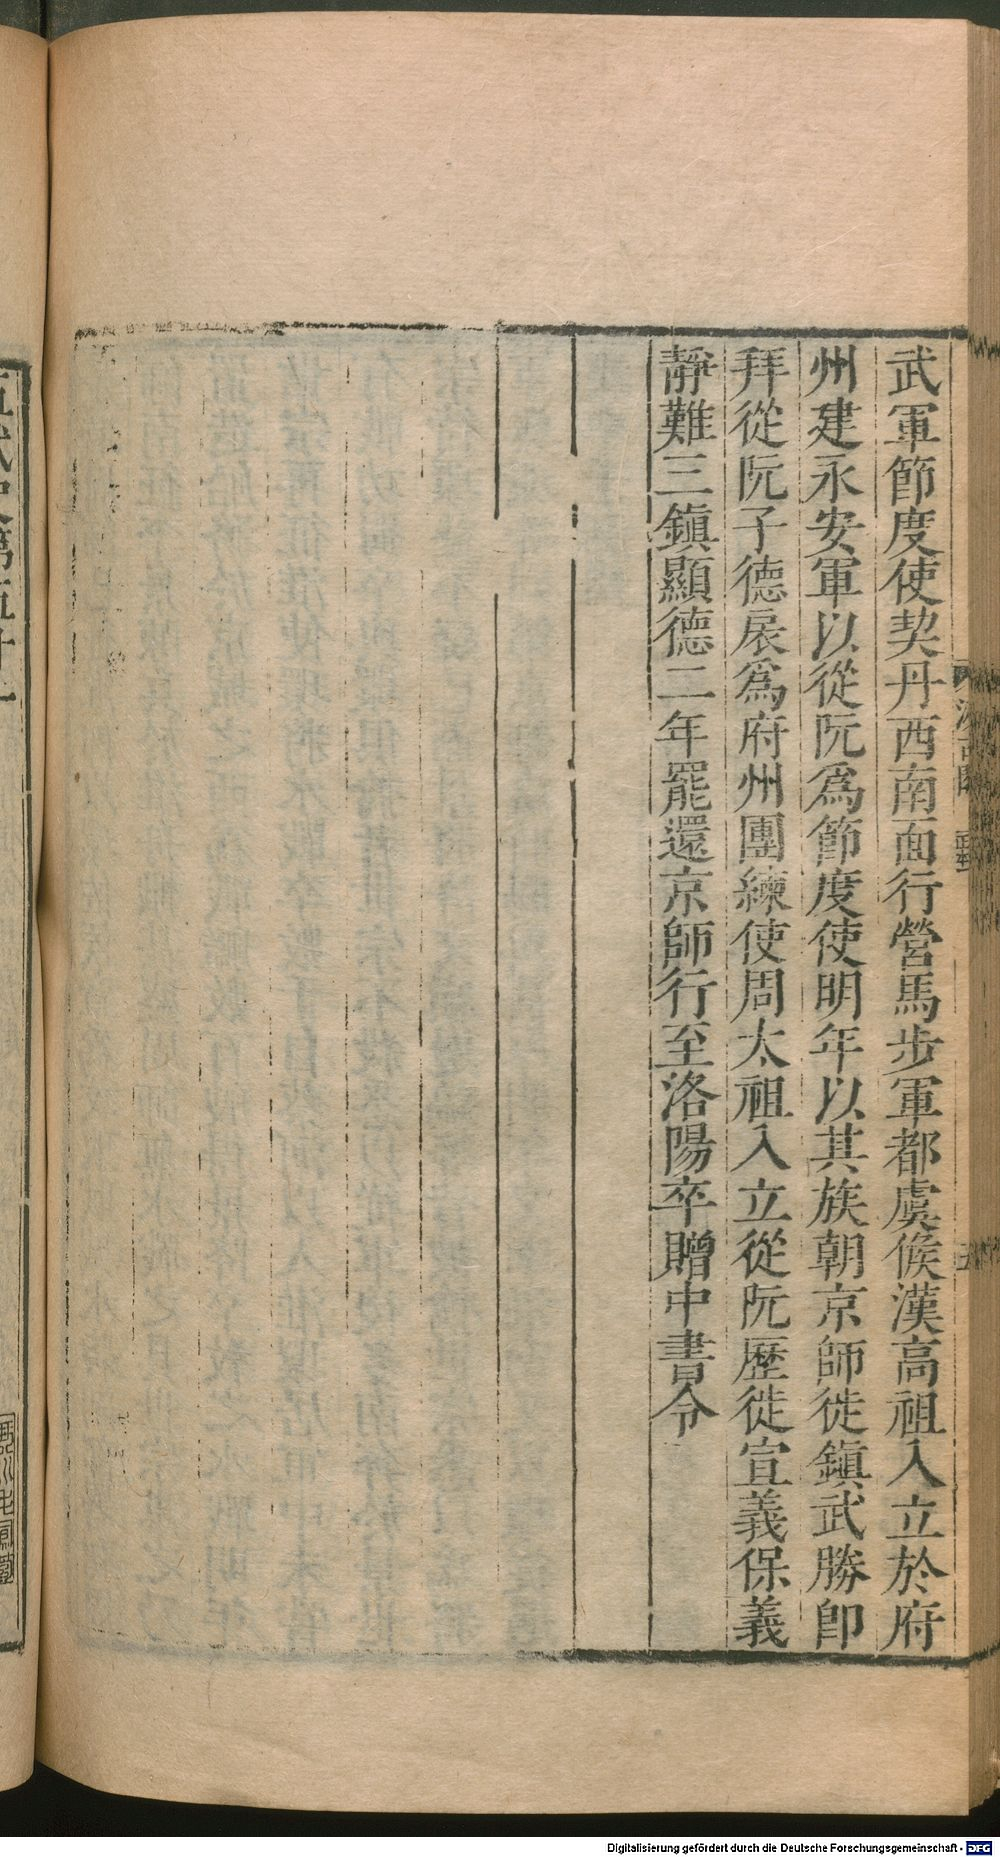 武軍節度使契丹西南面行營馬步軍都虞候漢高祖入立於府
州建永安軍以從阮爲節度使明年以其族朝京師徙鎮武勝卽
拜從阮子德扆爲府州團練使周太祖入立從阮歷徙宣義保義
靜難三鎮顯德二年罷還京師行至洛陽卒贈中書令
五代史第五十
Digitalisierung gefördert durch die Deutsche Forschungsgemeinschaft - DFG